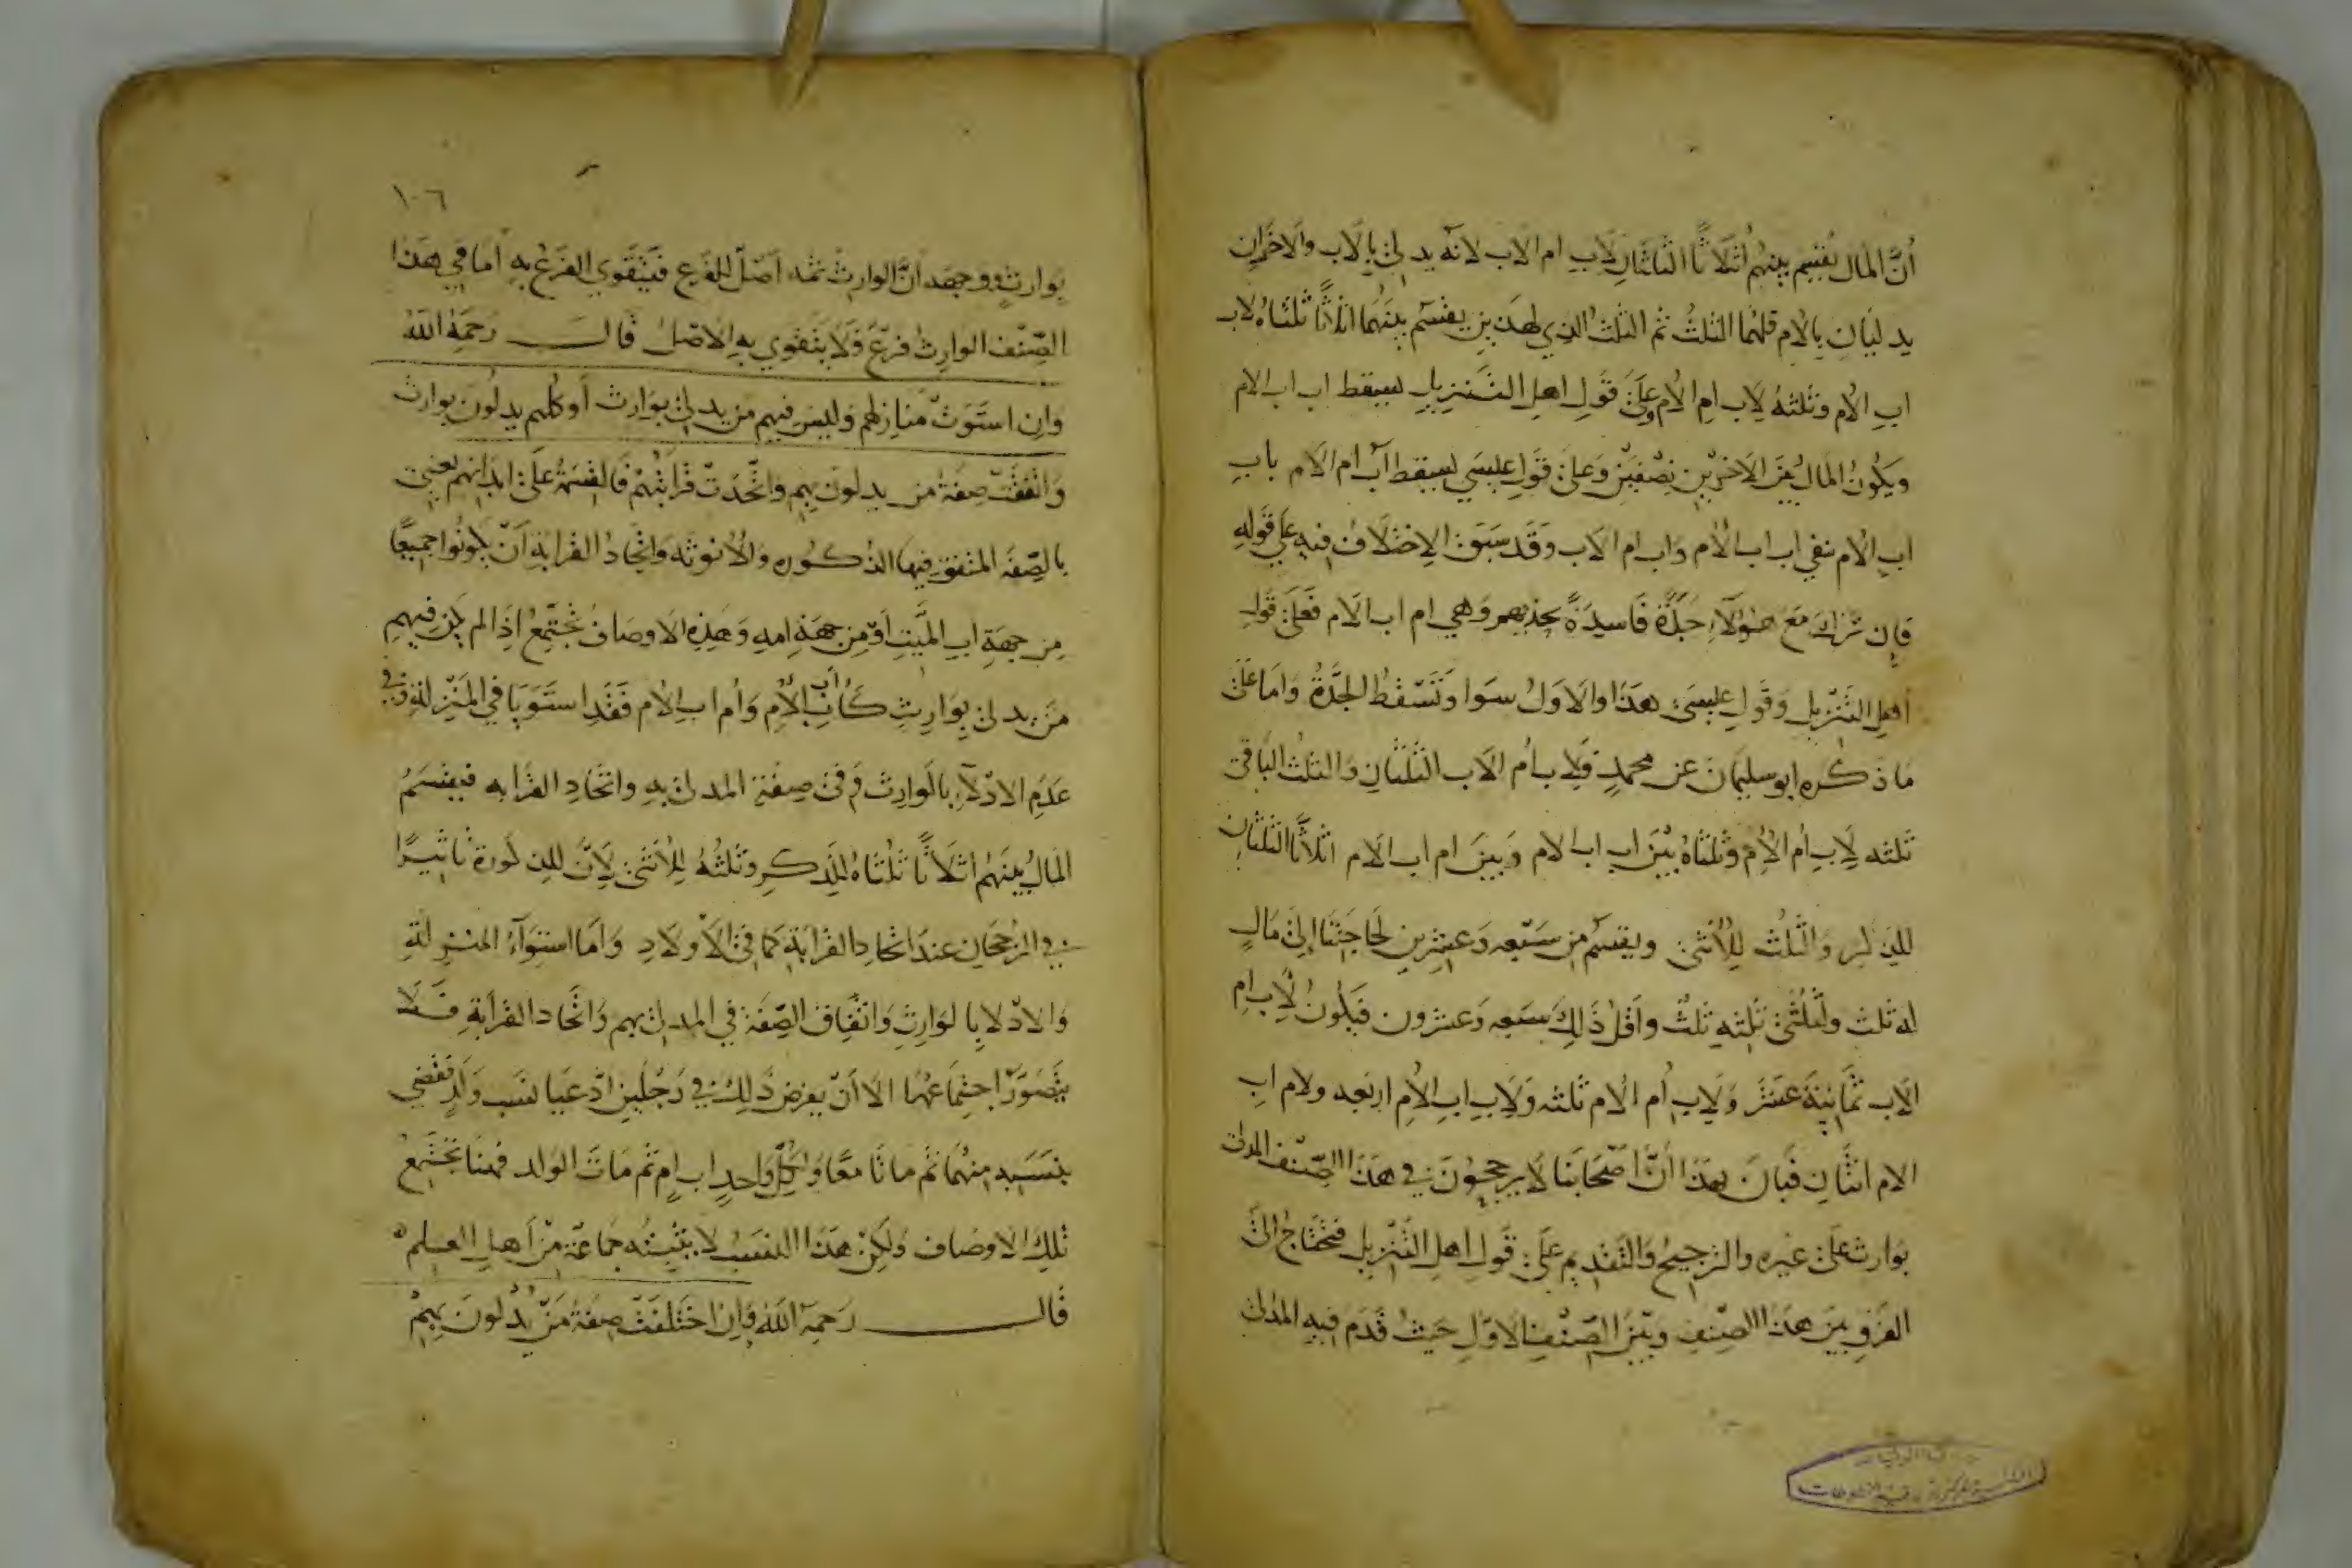 أنَّ المال يُقسم بينهم أثلاثًا الثلثان لاب ام الاب لانه يدلى بالاب والاخران
يدليان بالام فلهما الثلثُ ثم الثلث الذي لهذين يقسم بينهما اثلاثًا ثلثاه لاب
اب الأم وثلثه لاب ام الأم وعلى قول اهل التنزيل يسقط اب اب الام
ويكونُ المال بين الاخرين نصفين وعلى قول عيسى يسقط اب ام الام باب
اب الام بقي اب اب الام واب ام الاب وقد سبق الاختلاف فيه على قوله
فإن ترك مع هؤلآء جدَّة فاسدةً بحذيهم وهي ام اب الام فعلى قول
أهل التنزيل وقول عيسى هذا والاول سوا وتسقط الجدَّة واما على
ما ذكره ابو سليمان عن محمد فلاب أم الاب الثلثان والثلث الباقي
ثلثه لاب أم الأم وثلثاه بين اب اب الام وبين ام اب الام اثلاثًا الثلثان
للذكر والثلث للأنثى ويقسم من سبعه وعشرين لحاجتنا إلى مال
له ثلث ولثلثى ثلثه ثلث وأقل ذلك سبعه وعشرون فيكون لاب ام
الاب ثمانيةَ عشرَ ولاب أم الام ثلثه ولاب اب الأم اربعه ولام اب
الام اثنان فبان بهذا أنَّ اصحابنا لا يرجحون في هذا الصنف المدلى
بوارث على غيره والترجيح والتقديم على قول اهل التنزيل فتحتاج الى
الفرق بين هذا الصنف وبين الصنف الاول حيث قدم فيه المدلى
١٠٦
بوارث ووجهه أنَّ الوارث ثمه أصلٌ للفرع فيتقوى الفرع به أما في هذا
الصّنف الوارث فرعٌ فلا يتقوى به الأصل قال رحمه الله
وان استوت منازلهم وليس فيهم من يدلى بوارث أو كلهم يدلون بوارث
واتفقت صفة من يدلون بهم واتّحدت قرابتهم فالقسمة على ابدانهم يعني
بالصّفة المتفق فيها الذكوره والأنوثه واتحاد القرابة أن يكونوا جميعًا
من جهة اب الميّت أو من جهة امه وهذه الاوصاف تجتمع إذا لم يكن فيهم
من يدلى بوارث كأب اب الأم وأم اب الام فقد استويا في المنزلة وفي
عدم الادلآء بالوارث وفي صفة المدلى به واتحاد القرابه فيقسم
المال بينهم اثلاثًا ثلثاه للذكر وثلثه للأنثى لأنّ للذكورة تاثيرًا
في الرجحان عند اتحاد القرابة كما في الأولاد واما استوآء المنزلة
والادلا بالوارث واتفاق الصّفة في المدلى بهم واتحاد القرابة فلا
يتصوّر اجتماعهما الا أن يفرض ذلك في رجلين ادّعيا نسب ولد فقضي
بنسبه منهما ثم ماتا معًا ولكل واحد اب ام ثم مات الولد فهنا تجتمع
تلك الاوصاف ولكن هذا النسب لا يثبته جماعة من أهل العلم
قال رحمه الله فإن اختلفت صفة من يدلون بهم